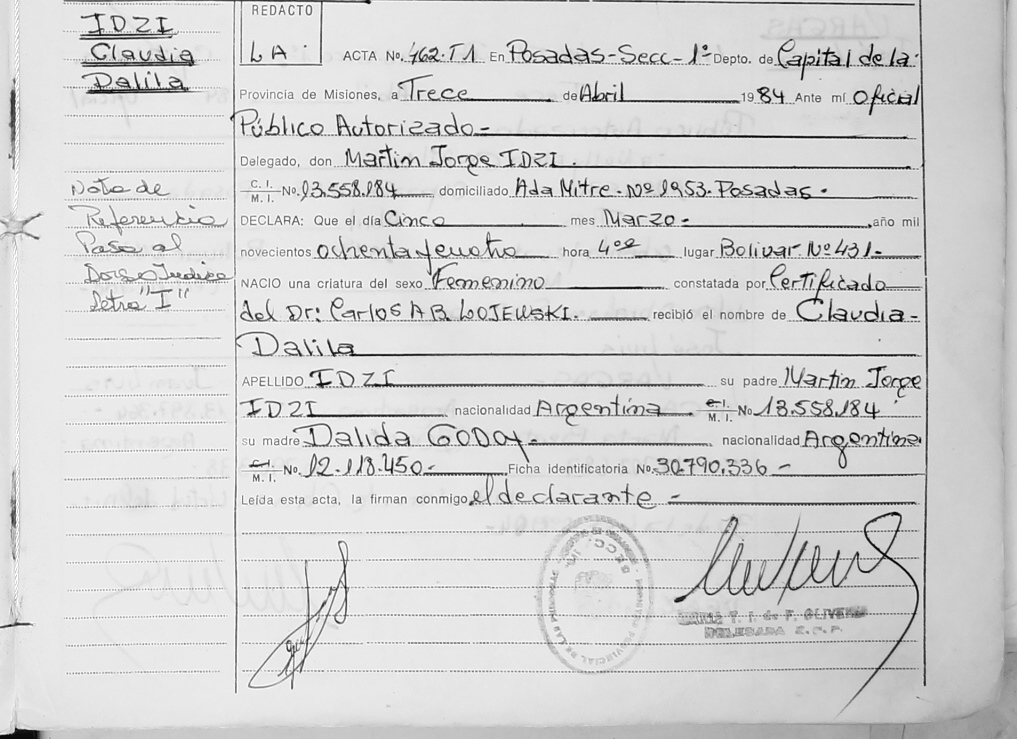 IDZI
Claudia
Dalila
Nota de
Referencia
Pasa al
Dorso Indice
letra "I"
REDACTO
L A
ACTA No. 462. T1 En Posadas-Secc-1ª Depto. de Capital de la
Provincia de Misiones, a Trece de Abril 1984 Ante mí Oficial
Público Autorizado-
Delegado, don Martin Jorge IDZI.
C. I. M. I. No. 13.558.184 domiciliado Ada Mitre. Nº 1953. Posadas.
DECLARA: Que el día Cinco mes Marzo- año mil
novecientos ochenta y cuatro hora 4 lugar Bolivar. Nº 431-
NACIO una criatura del sexo Femenino constatada por Certificado
del Dr: Carlos A B. LOJEWSKI. recibió el nombre de Claudia-
Dalila
APELLIDO IDZI su padre Martin Jorge
IDZI nacionalidad Argentina. C. I. M. I. No 13.558.184
su madre Dalida GODOY- nacionalidad Argentina
C. I. M. I. No. 12.118.450- Ficha identificatoria No. 30.790.336-
Leída esta acta, la firman conmigo, el declarante-
DELEGADA